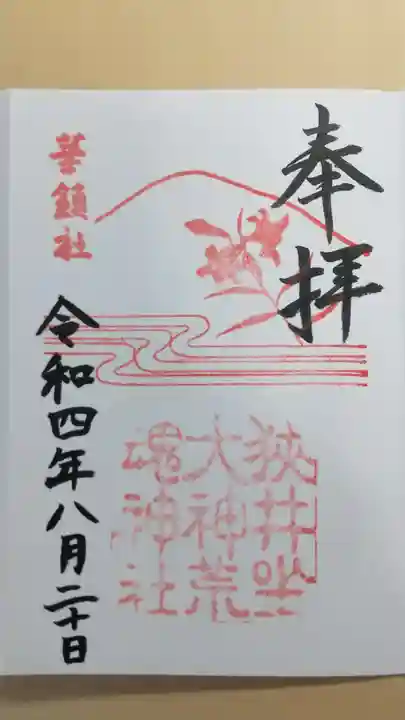 奉拝
狭井坐
大神荒
魂神社
華鎮社
令和四年八月二十日